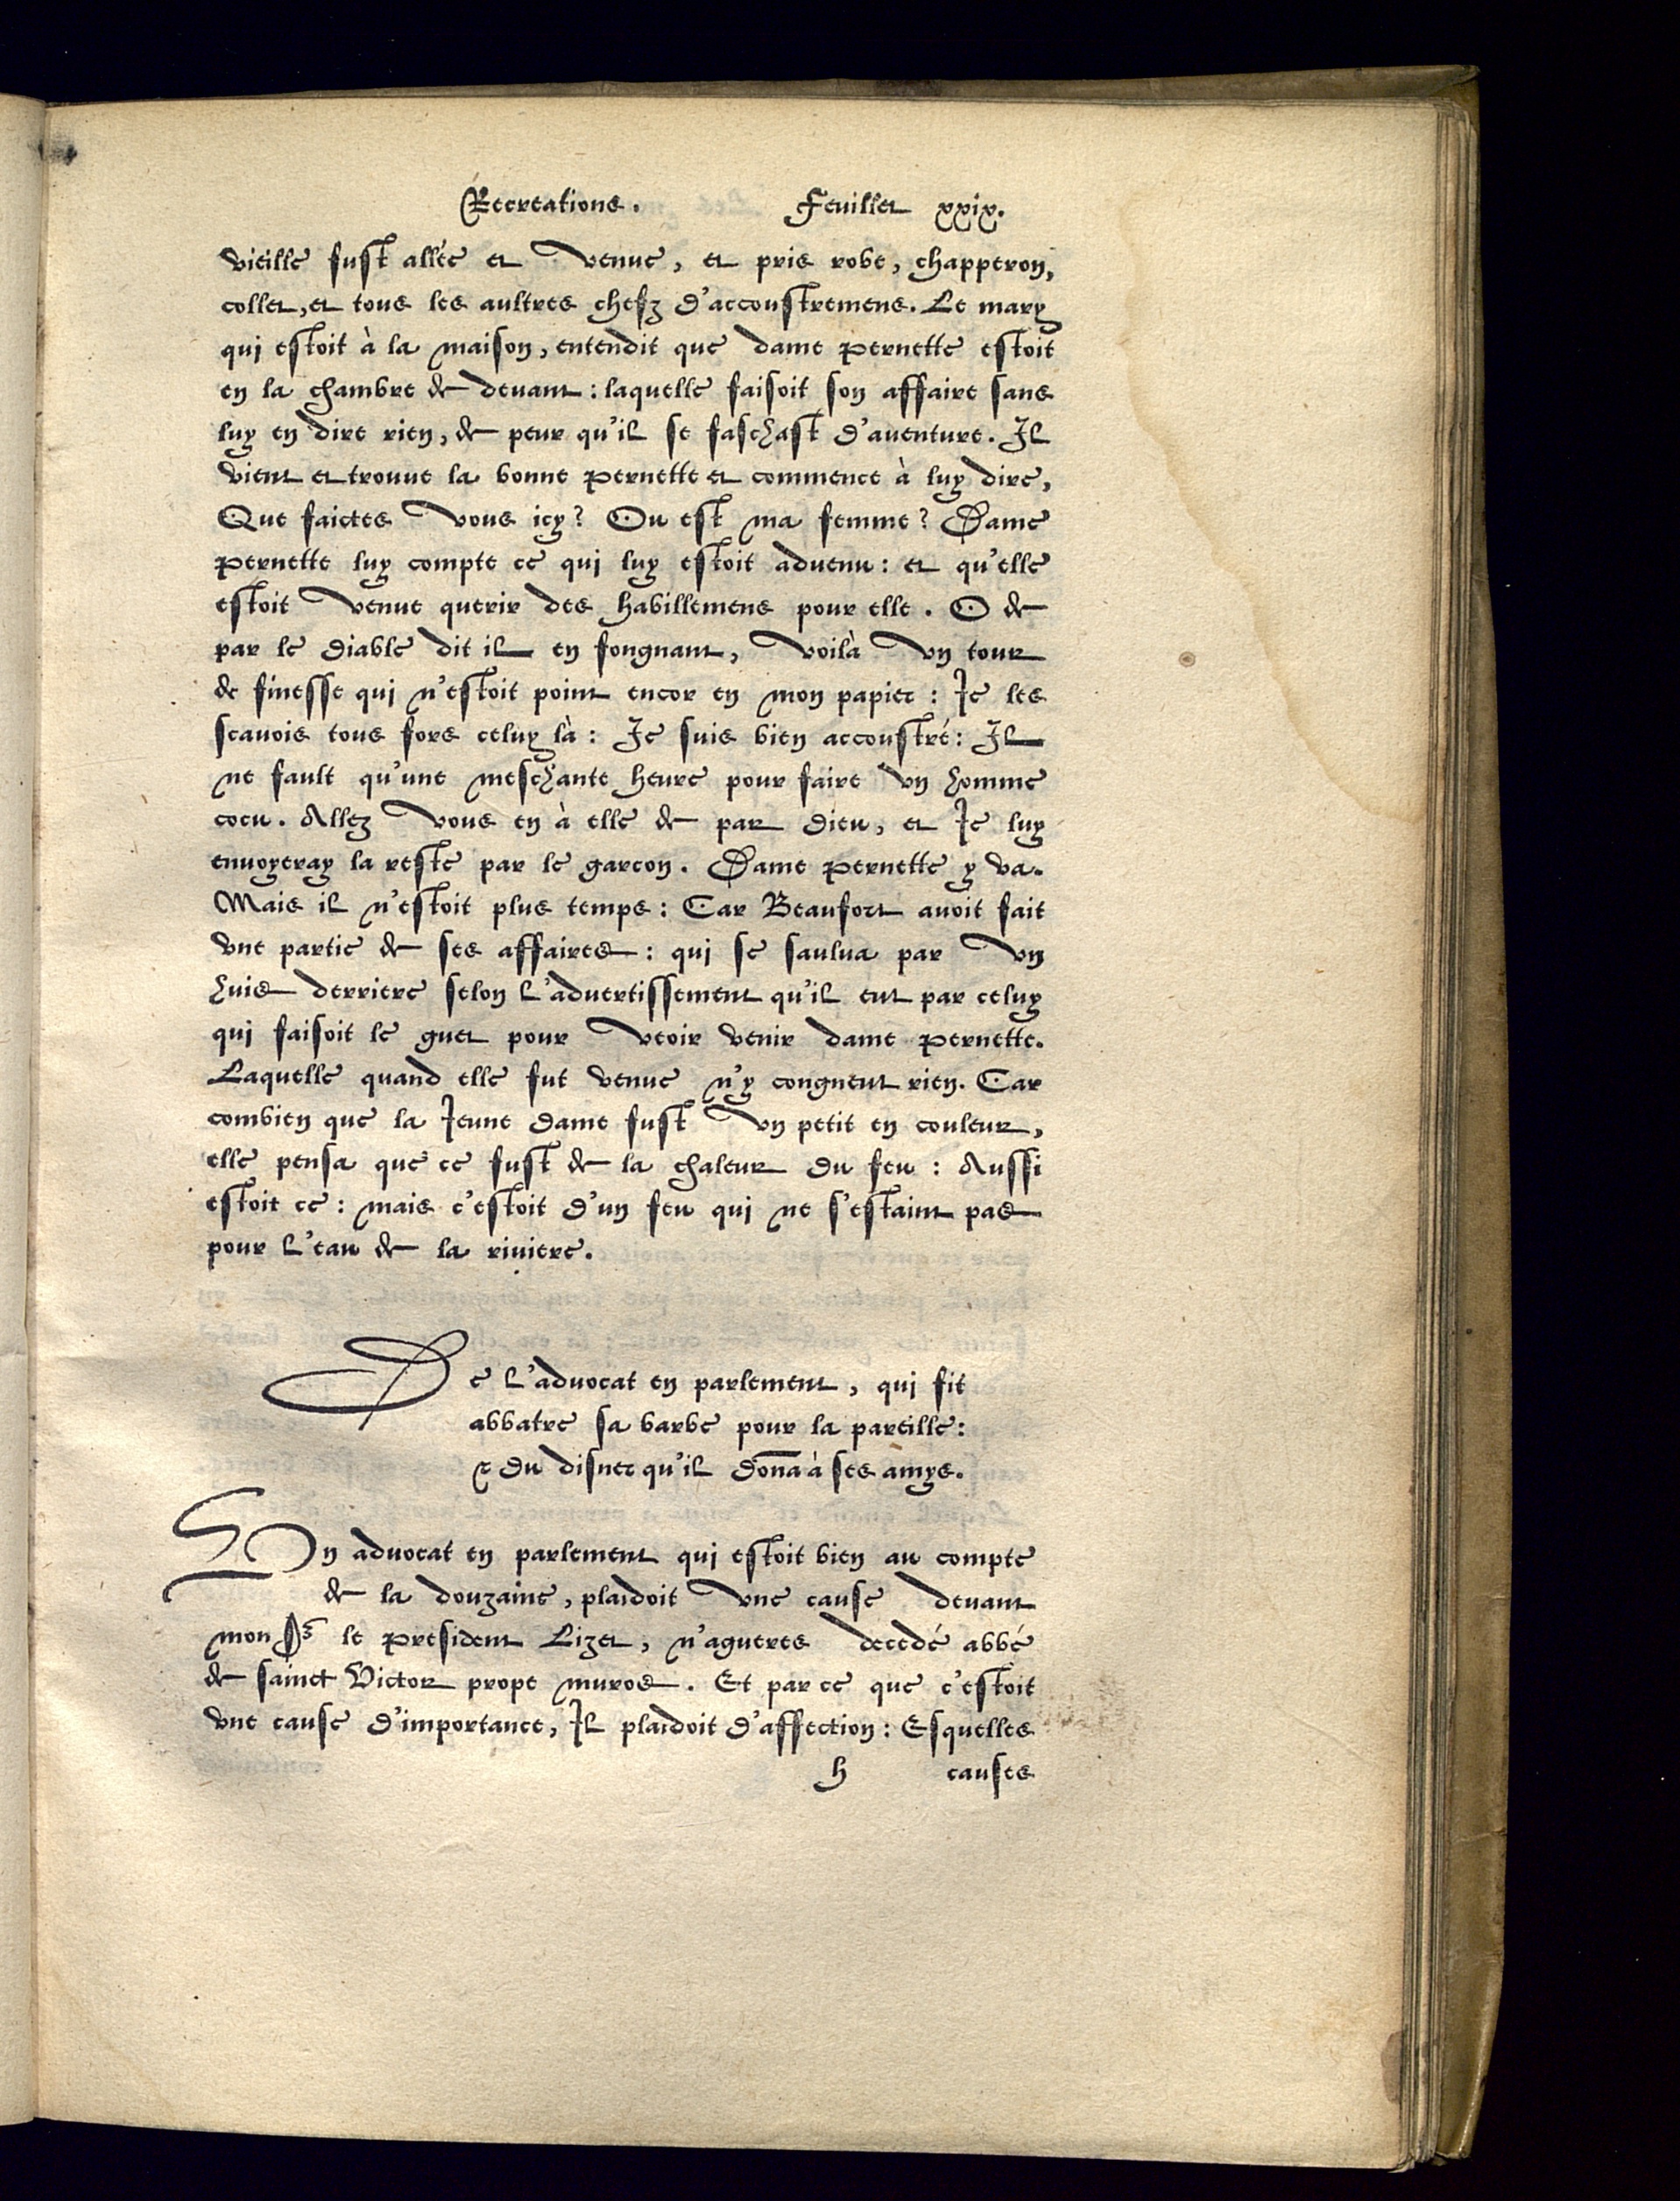 Recreations. Feuillet xxix.
vieille fust allée et venue, et pris robe, chapperon,
collet, et tous les aultres chefz d'accoustremens. Le mary
qui estoit à la maison, entendit que dame Pernette estoit
en la chambre de devant : laquelle faisoit son affaire sans
luy en dire rien, de peur qu'il se faschast d'auenture. Il
vient et trouue la bonne Pernette et commence à luy dire,
Que faictes vous icy? Ou est ma femme? Dame
Pernette luy compte ce qui luy estoit aduenu : et qu'elle
estoit venue querir des habillemens pour elle. O de
par le diable dit il en fongnant, voilà vn tour
de finesse qui n'estoit point encor en mon papier : Ie les
scauois tous fors celuy là : Ie suis bien accoustré : Il
ne fault qu'une meschante heure pour faire vn homme
cocu. Allez vous en à elle de par Dieu, et Ie luy
enuoyeray la reste par le garcon. Dame Pernette y va.
Mais il n'estoit plus temps : Car Beaufort auoit fait
vne partie de ses affaires : qui se saulua par vn
huis derriere selon l'aduertissement qu'il eut par celuy
qui faisoit le guet pour veoir venir dame Pernette.
Laquelle quand elle fut venue n'y congneut rien. Car
combien que la Ieune dame fust vn petit en couleur,
elle pensa que ce fust de la chaleur du feu : Aussi
estoit ce : mais c'estoit d'un feu qui ne s'estaint pas
pour l'eau de la riuiere.
De l'aduocat en parlement, qui fit
abbatre sa barbe pour la pareille :
& du disner qu'il dona à ses amys.
Vn aduocat en parlement qui estoit bien au compte
de la douzaine, plaidoit vne cause deuant
mon Sr le President Lizet, n'agueres decedé abbé
de sainct Victor prope muros. Et par ce que c'estoit
vne cause d'importance, Il plaidoit d'affection : Esquelles
h causes